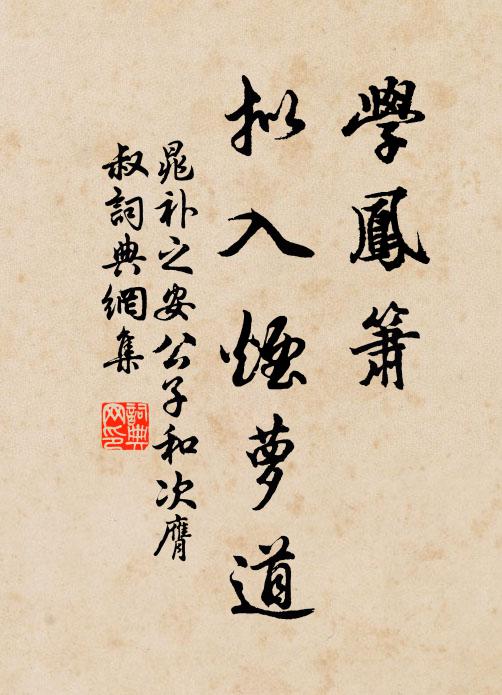 學鳳簫
拟入煙萝道
晁补之安公子和次膺
叔詞典網集
詞典网印